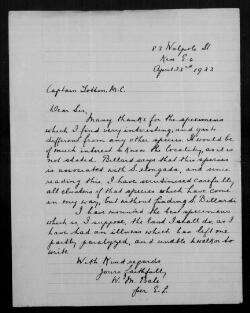 83 Walpole St
Kew E.4
April 22nd 1933
Captain Totton, M.C.
Dear Sir,
Many thanks for the specimens
which I find very interesting, and quite
different from any other species. It would be
of much interest to know the locality, as it is
not stated. Billard says that this species
is associated with S. elongata, and since
reading this, I have scrutinised carefully
all clusters of that species which have come
in my way, but without finding S. Billardi
I have mounted the best specimens
which is, I suppose, the last I shall do, as I
have had an illness which has left me
partly paralyzed, and unable to walk or to
write
With Kind regards
Yours faithfully,
W. M. Bale
per E.L.